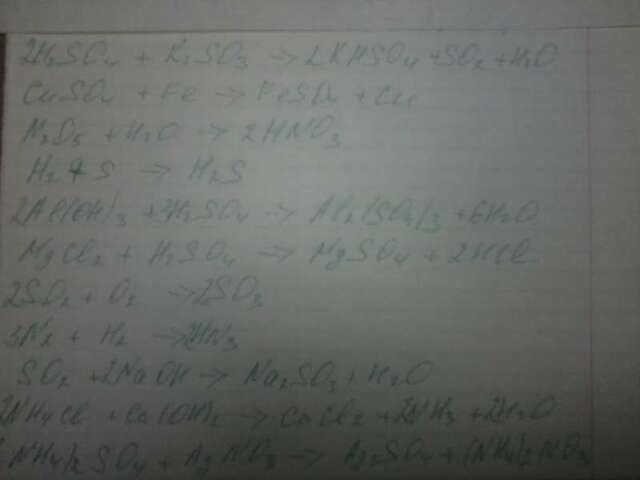 2H₂SO₄ + K₂SO₃ → 2KHSO₄ + SO₂ + H₂O
CuSO₄ + Fe → FeSO₄ + Cu
N₂O₅ + H₂O → 2HNO₃
H₂ + S → H₂S
2Al(OH)₃ + 3H₂SO₄ → Al₂(SO₄)₃ + 6H₂O
MgCl₂ + H₂SO₄ → MgSO₄ + 2HCl
2SO₂ + O₂ → 2SO₃
N₂ + H₂ → NH₃
SO₂ + 2NaOH → Na₂SO₃ + H₂O
NH₄Cl + Ca(OH)₂ → CaCl₂ + 2NH₃ + 2H₂O
(NH₄)₂SO₄ + AgNO₃ → Ag₂SO₄ +